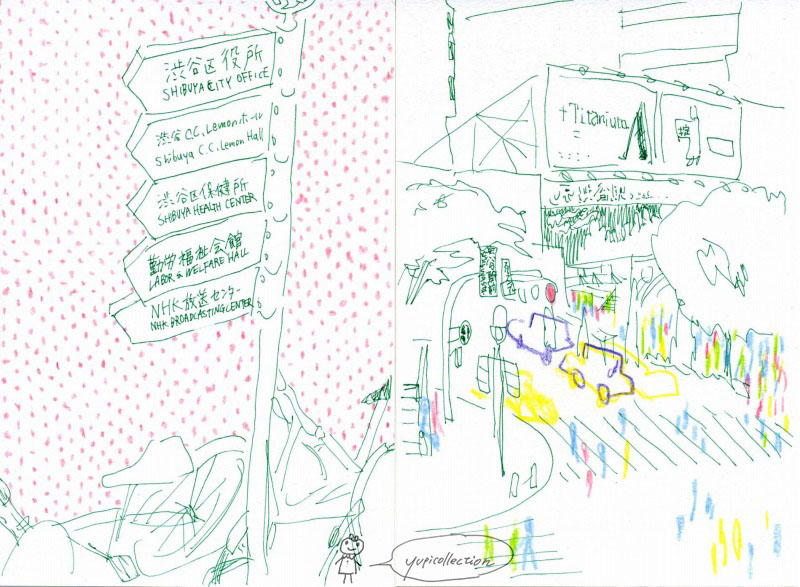 渋谷区役所
SHIBUYA CITY OFFICE
渋谷C.C.Lemonホール
Shibuya C.C.Lemon Hall
渋谷区保健所
SHIBUYA HEALTH CENTER
勤労福祉会館
LABOR & WELFARE HALL
NHK放送センター
NHK BROADCASTING CENTER
+Titanium
yupicollection